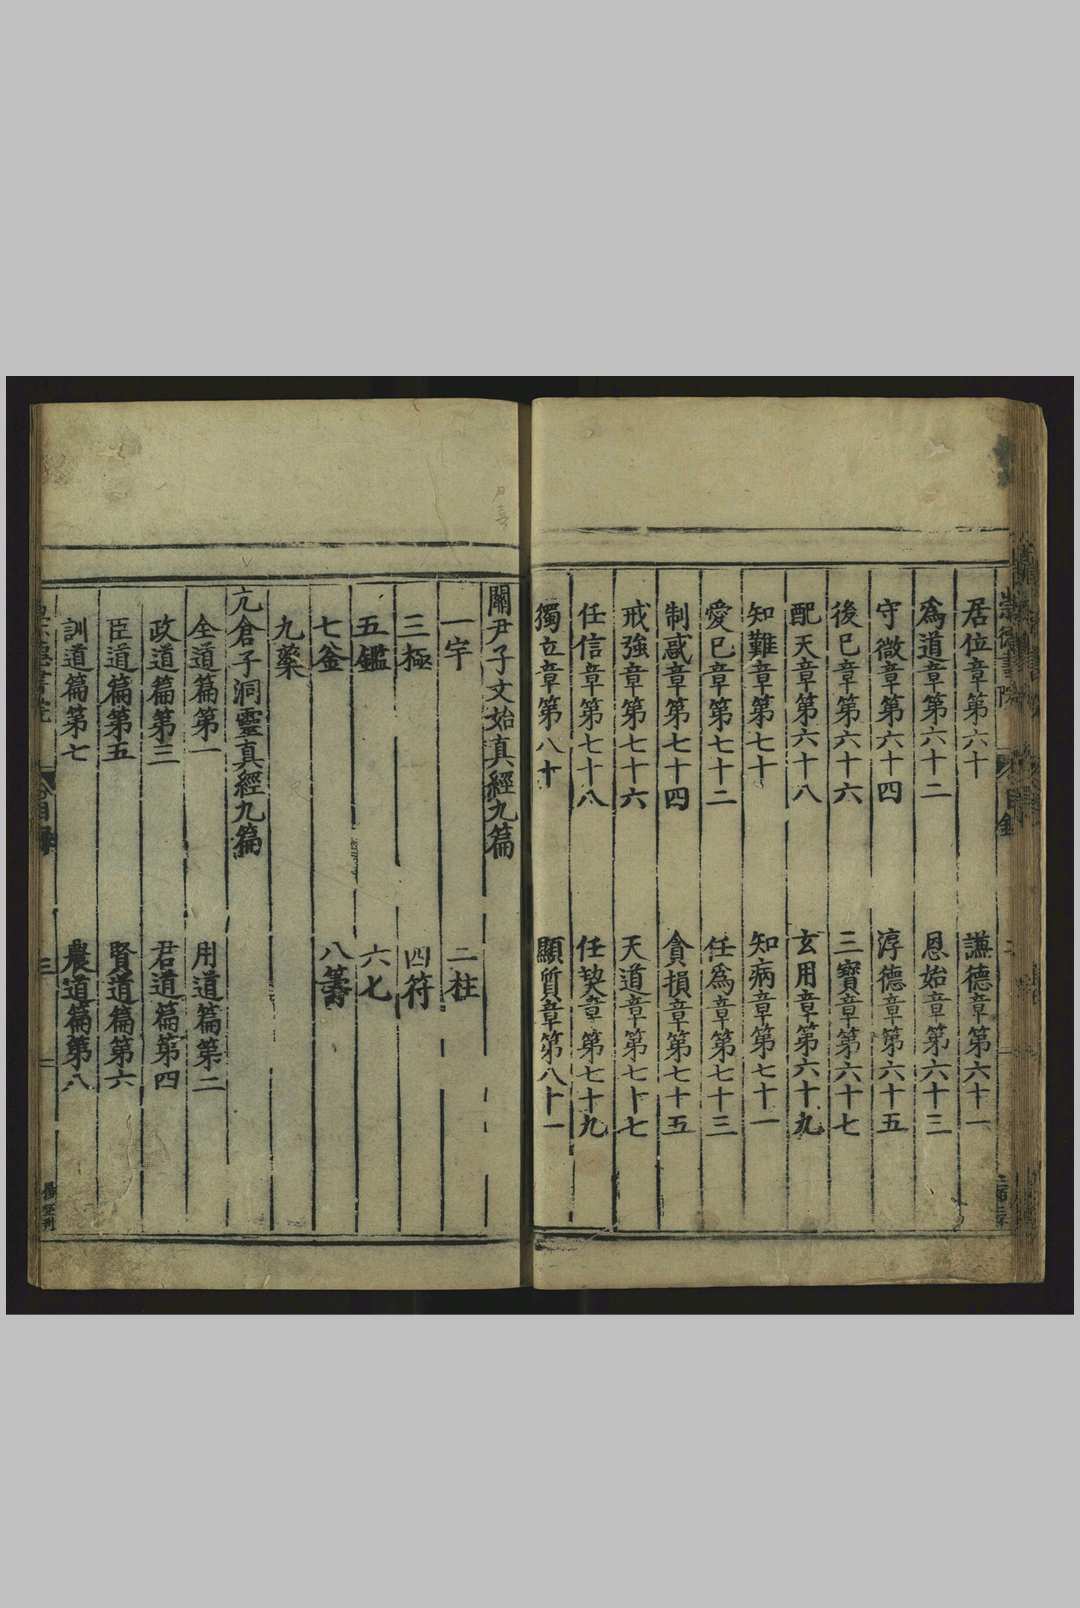 居位章第六十　謙德章第六十一
爲道章第六十二　恩始章第六十三
守微章第六十四　淳德章第六十五
後已章第六十六　三寳章第六十七
配天章第六十八　玄用章第六十九
知難章第七十　知病章第七十一
愛已章第七十二　任爲章第七十三
制惑章第七十四　貪損章第七十五
戒強章第七十六　天道章第七十七
任信章第七十八　任契章第七十九
獨立章第八十　顯質章第八十一
關尹子文始真經九篇
一宇　二柱
三極　四符
五鑑　六七
七釜　八籌
九藥
亢倉子洞靈真經九篇
全道篇第一　用道篇第二
政道篇第三　君道篇第四
臣道篇第五　賢道篇第六
訓道篇第七　農道篇第八
崇德書院
目錄
三